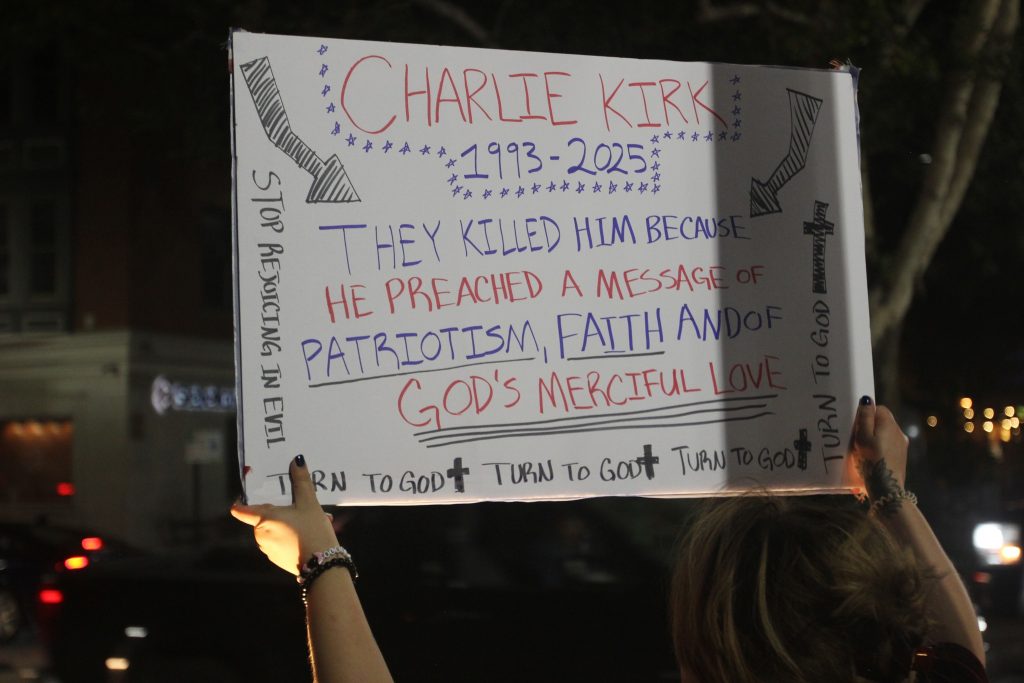 CHARLIE KIRK
1993-2025
THEY KILLED HIM BECAUSE
HE PREACHED A MESSAGE OF
PATRIOTISM, FAITH AND OF
GOD'S MERCIFUL LOVE
STOP REJOICING IN EVIL
TURN TO GOD
TURN TO GOD TURN TO GOD TURN TO GOD